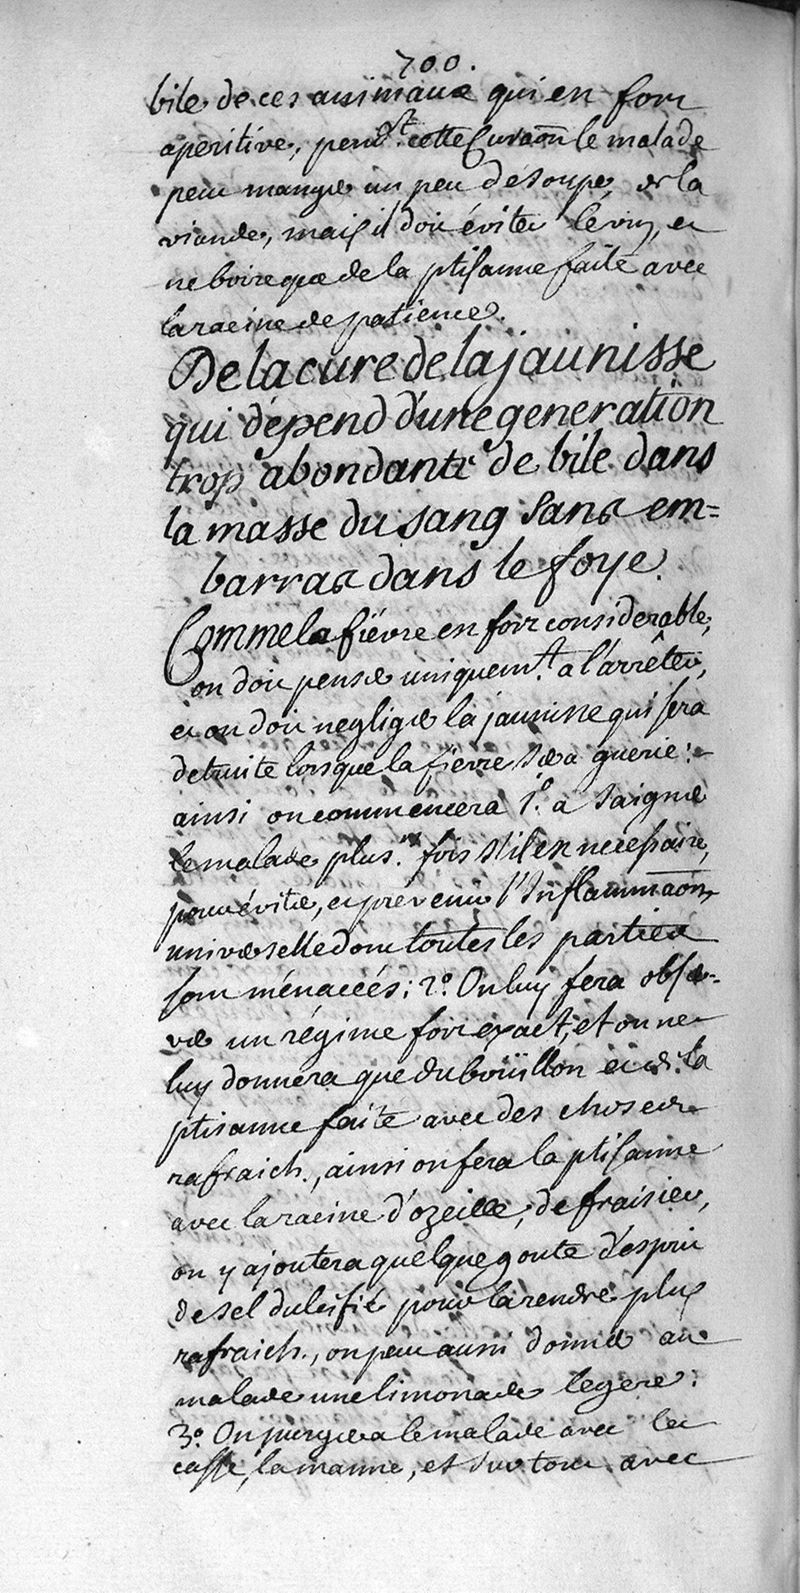 700.
bile de ces animaux qui en fort
aperitive, pend.t cette curaōn le malade
peut manger un peu de soupe, de la
viande, mais il doit éviter le vin, et
ne boire que de la ptisanne faite avec
la racine de patience.
De la cure de la jaunisse
qui dépend d'une generation
trop abondante de bile dans
la masse du sang sans em=
barras dans le foye.
Comme la fiévre en fort considerable,
on doit penser uniquem.t a l'arrêter,
et on doit negliger la jaunisse qui sera
detruite lorsque la fievre sera guerie:
ainsi on commencera 1.o a saigner
le malade plus.rs fois s'il est necessaire,
pour éviter, et prévenir l'Inflammaōn
universelle dont toutes les parties
sont ménacées: 2.o On luy fera obser=
ver un régime fort exact, et on ne
luy donnera que du boüillon et de la
ptisanne faite avec des choses
rafraich., ainsi on fera la ptisanne
avec la racine d'ozeille, de fraisier,
on y ajoutera quelque goute d'esprit
de sel dulcifié pour la rendre plus
rafraich., on peut aussi donner au
malade une limonade legere:
3.o On purgera le malade avec la
casse, la manne, et sur tout avec